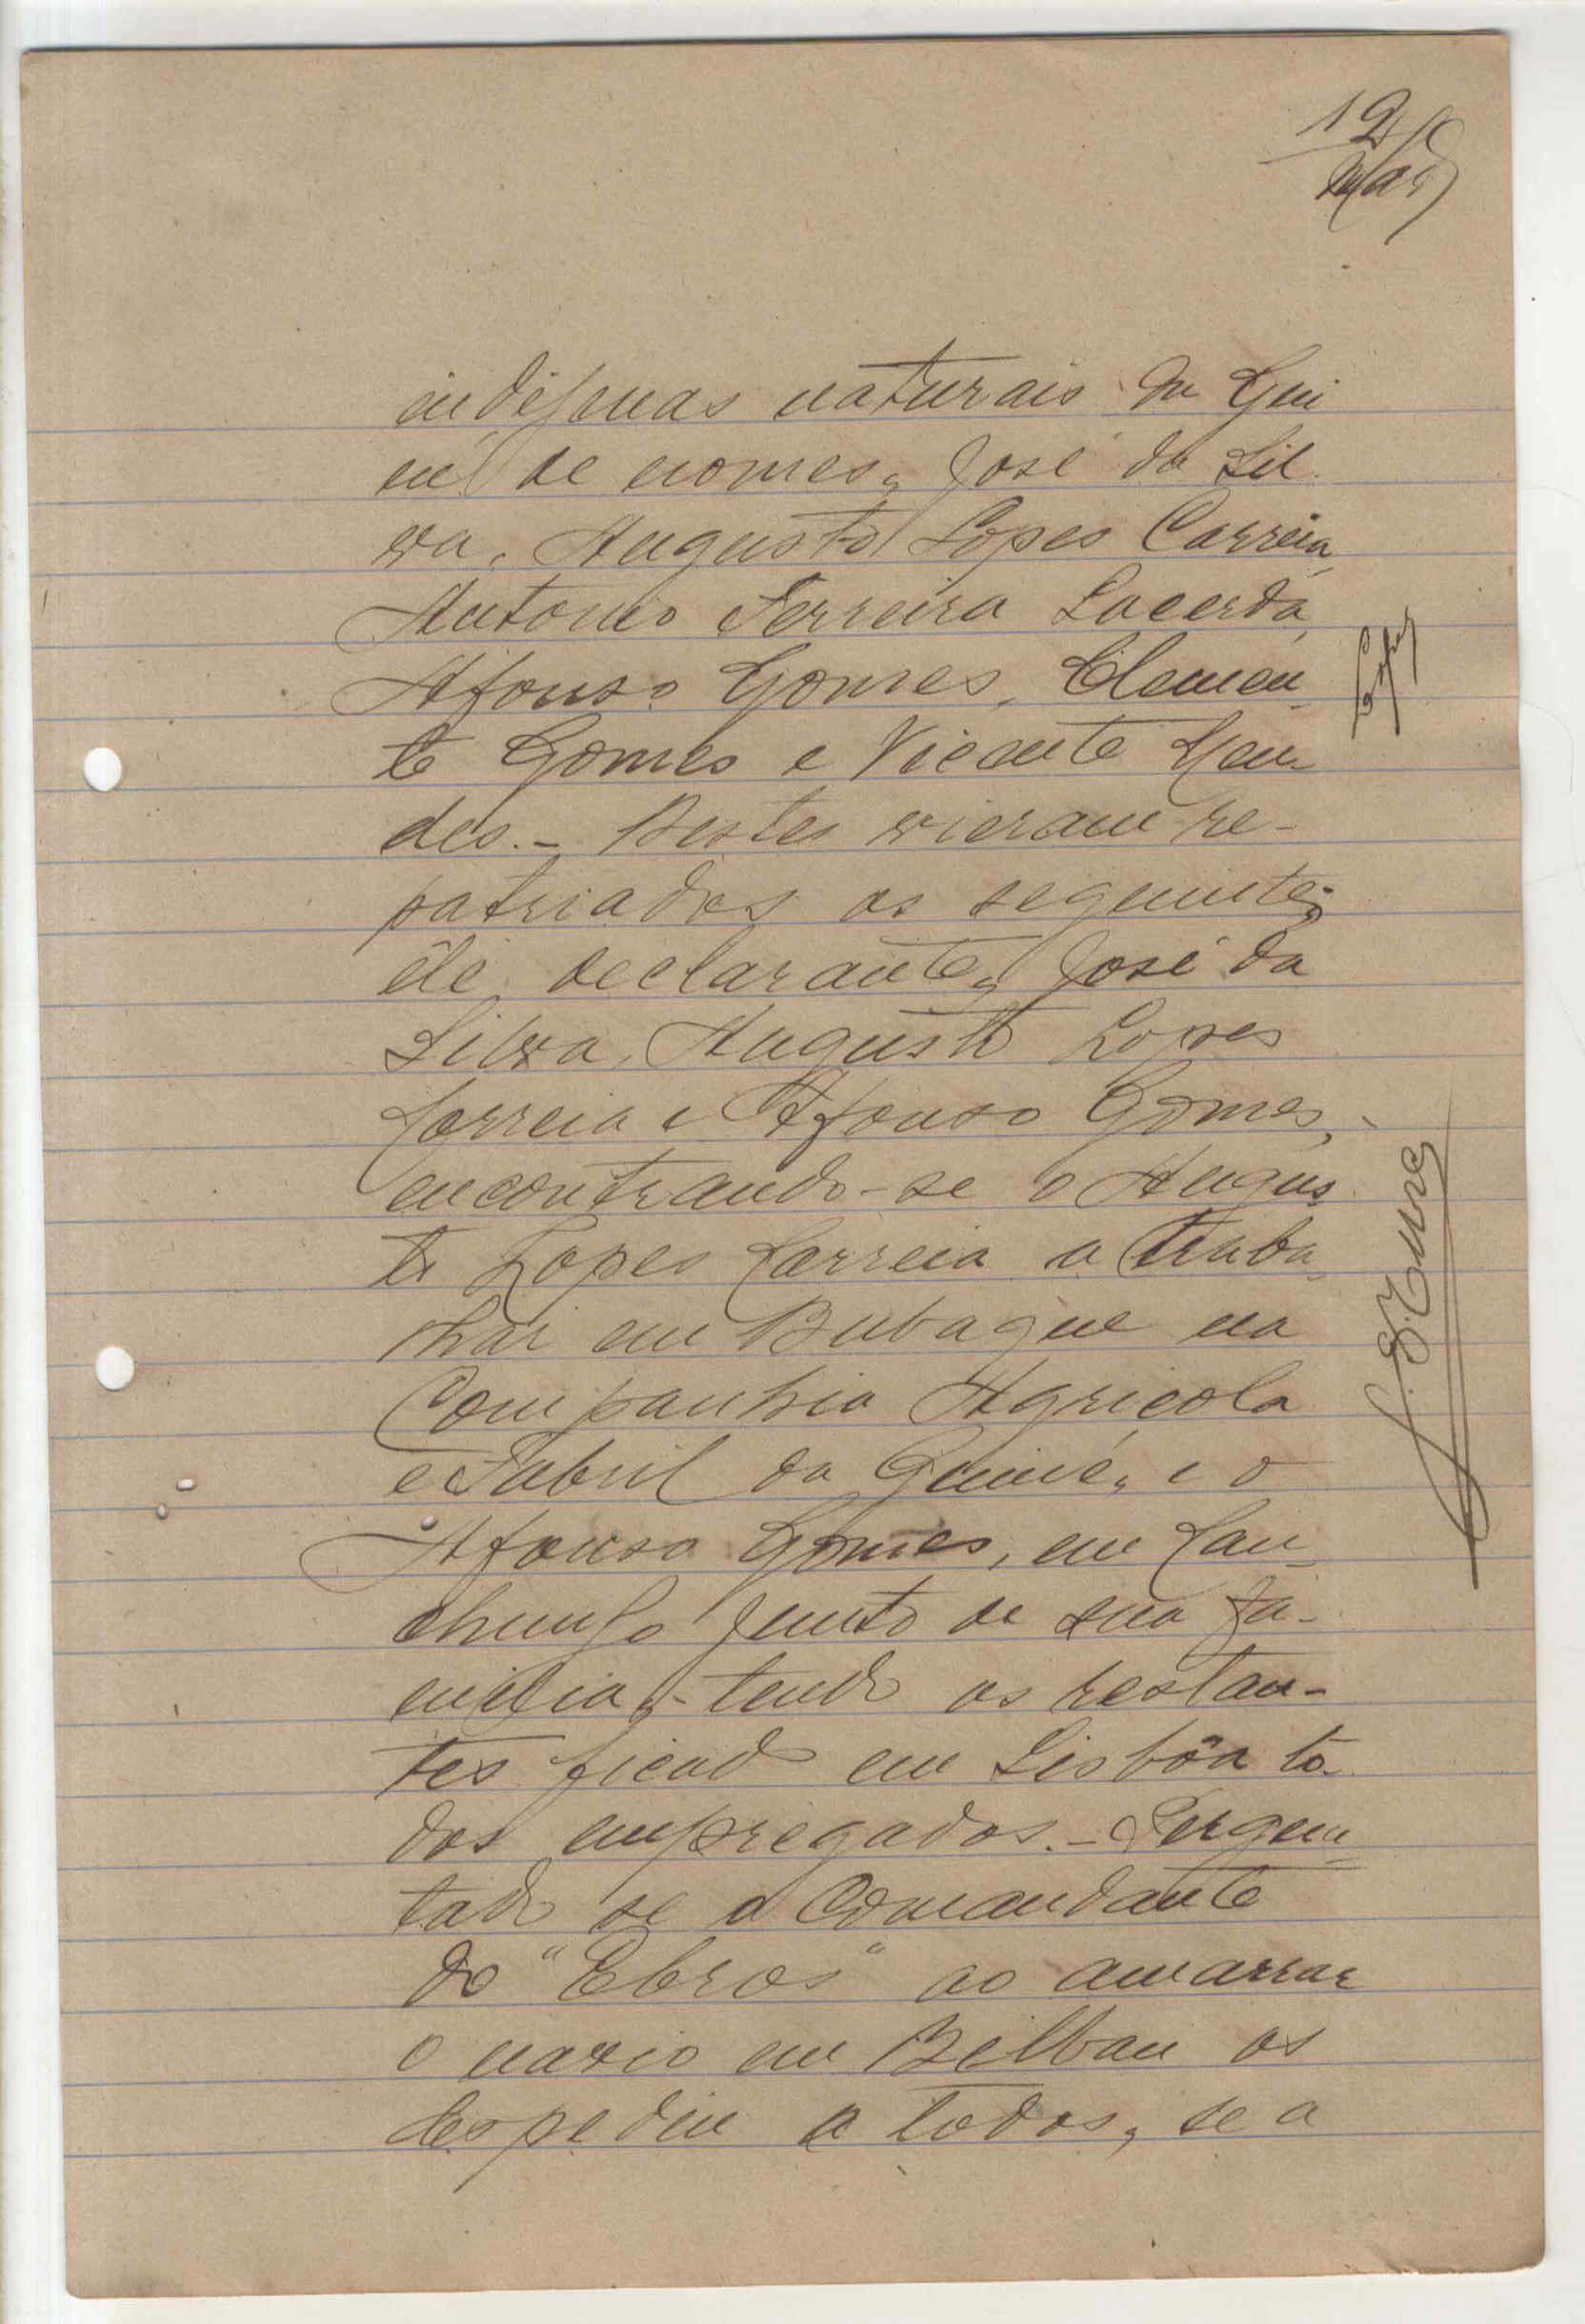 12
indigenas naturais da Gui
né de nomes, José da Sil
va, Augusto Lopes Correia,
Antonio Ferreira Lacerda,
Afonso Gomes, Clemen-
te Gomes e Vicente Men-
des.- Destes vieram re-
patriados os seguintes
éle declarante, José da
Silva, Augusto Lopes
Correia e Afonso Gomes,
encontrando-se o Augus
to Lopes Correia a traba-
lhar em Bubaque na
Companhia Agricola
e Fabril da Guiné, e o
Afonso Gomes, em Can-
chungo junto de sua fa-
milia,- tendo os restan-
tes ficado em Lisbôa to-
dos empregados.- Pergun-
tado se o Comandante
do "Ebros" ao amarrar
o navio em Bilbau os
despediu a todos, se a
Lopes